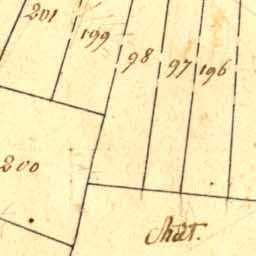 201
199
98
97
196
200
Chât.